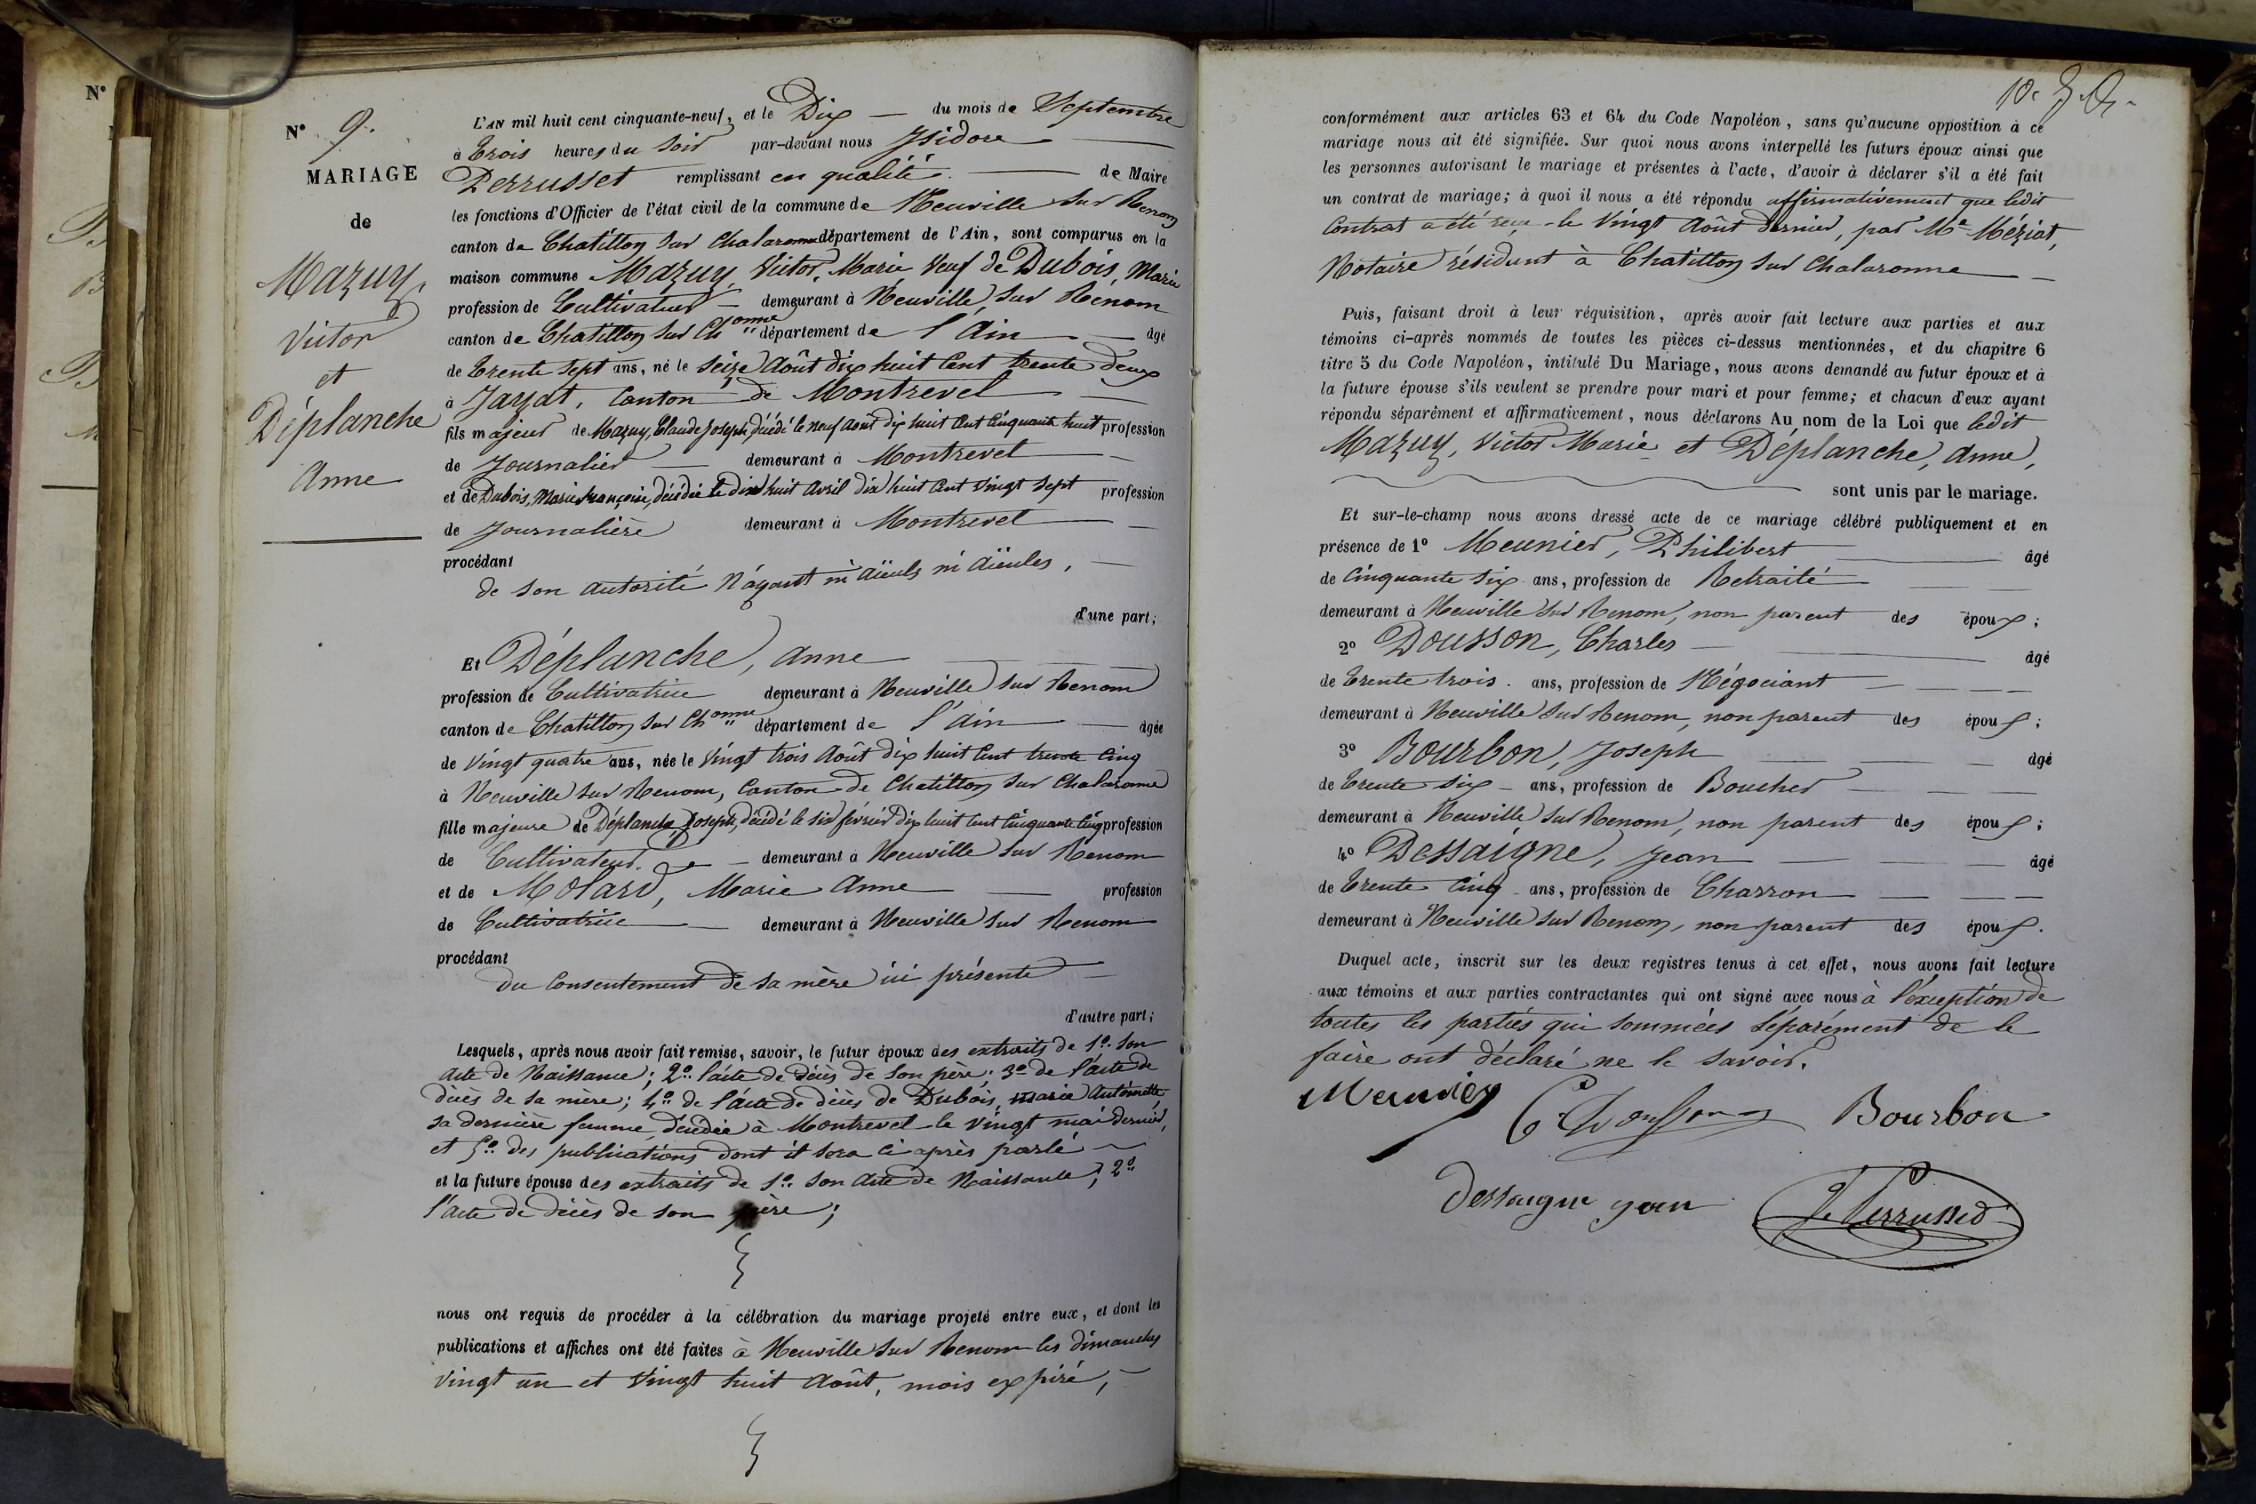 N°
N° 9.
MARIAGE
de
Mazuy,
Victor
et
Déplanche
Anne
L'AN mil huit cent cinquante-neuf, et le Dix — du mois de Septembre
à Trois heures du Soir par-devant nous Isidore
Perrusset remplissant en qualité de Maire
les fonctions d'Officier de l'état civil de la commune de Neuville sur Renom
canton de Chatillon sur Chalaronne département de l'Ain, sont comparus en la
maison commune Mazuy, Victor, Marie Veuf de Dubois, Marie
profession de Cultivateur — demeurant à Neuville sur Renom
canton de Chatillon sur Chonne département de l'Ain — âgé
de Trente sept ans, né le seize Août dix huit Cent trente deux
à Jayat, Canton de Montrevel —
fils majeur de Mazuy, Claude Joseph, décédé le neuf Août dix huit Cent Cinquante huit profession
de Journalier — demeurant à Montrevel —
et de Dubois, Marie Françoise, décédée le dix huit Avril dix huit Cent Vingt Sept profession
de Journalière demeurant à Montrevel —
procédant
de son autorité N'ayant ni aïeuls ni aïeules, —
d'une part;
Et Déplanche, Anne —
profession de Cultivatrice demeurant à Neuville sur Renom
canton de Chatillon sur Chonne département de l'Ain — âgée
de Vingt quatre ans, née le Vingt trois Août dix huit Cent trente Cinq
à Neuville sur Renom, Canton de Chatillon sur Chalaronne
fille majeure de Déplanche, Joseph, décédé le six février dix huit Cent Cinquante Cinq profession
de Cultivateur — demeurant à Neuville sur Renom
et de Molard, Marie Anne — profession
de Cultivatrice — demeurant à Neuville sur Renom
procédant
du Consentement de sa mère ici présente —
d'autre part;
Lesquels, après nous avoir fait remise, savoir, le futur époux des extraits de 1° son
acte de Naissance; 2° l'acte de décès de son père; 3° de l'acte de
décès de sa mère; 4° de l'acte de décès de Dubois, Marie Antoinette
sa dernière femme, décédée à Montrevel le Vingt mai dernier,
et 5° des publications dont il sera ci après parlé —
et la future épouse des extraits de 1° son Acte de Naissance; 2°
l'acte de décès de son père;
nous ont requis de procéder à la célébration du mariage projeté entre eux, et dont les
publications et affiches ont été faites à Neuville sur Renom les dimanches
Vingt un et Vingt huit Août, mois expiré, —
conformément aux articles 63 et 64 du Code Napoléon, sans qu'aucune opposition à ce
mariage nous ait été signifiée. Sur quoi nous avons interpellé les futurs époux ainsi que
les personnes autorisant le mariage et présentes à l'acte, d'avoir à déclarer s'il a été fait
un contrat de mariage; à quoi il nous a été répondu affirmativement que ledit
Contrat a été reçu le Vingt Août dernier, par Me Méziat,
Notaire résidant à Chatillon sur Chalaronne —
Puis, faisant droit à leur réquisition, après avoir fait lecture aux parties et aux
témoins ci-après nommés de toutes les pièces ci-dessus mentionnées, et du chapitre 6
titre 5 du Code Napoléon, intitulé Du Mariage, nous avons demandé au futur époux et à
la future épouse s'ils veulent se prendre pour mari et pour femme; et chacun d'eux ayant
répondu séparément et affirmativement, nous déclarons Au nom de la Loi que ledit
Mazuy, Victor Marie et Déplanche, Anne,
sont unis par le mariage.
Et sur-le-champ nous avons dressé acte de ce mariage célébré publiquement et en
présence de 1° Meunier, Philibert — âgé
de Cinquante six ans, profession de Retraité —
demeurant à Neuville sur Renom, non parent des époux;
2° Dousson, Charles — âgé
de Trente trois ans, profession de Négociant —
demeurant à Neuville sur Renom, non parent des époux;
3° Bourbon, Joseph — âgé
de Trente six — ans, profession de Boucher —
demeurant à Neuville sur Renom, non parent des époux;
4° Dessaigne, Jean — âgé
de Trente Cinq ans, profession de Charron —
demeurant à Neuville sur Renom, non parent des époux.
Duquel acte, inscrit sur les deux registres tenus à cet effet, nous avons fait lecture
aux témoins et aux parties contractantes qui ont signé avec nous à l'exception de
toutes les parties qui sommées séparément de le
faire ont déclaré ne le savoir.
Meunier C. Dousson Bourbon
Dessaigne jean J. Perrusset